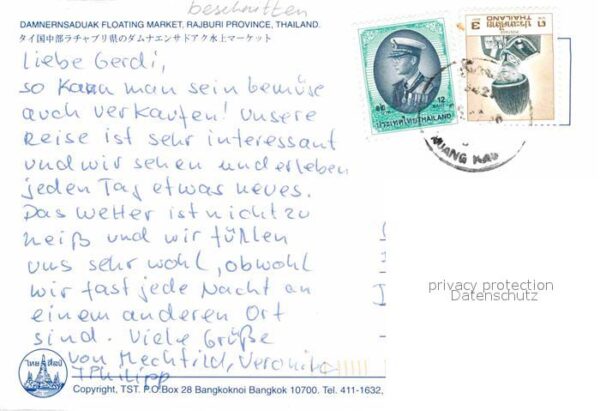 beschnitten
DAMNERNSADUAK FLOATING MARKET, RAJBURI PROVINCE, THAILAND.
タイ国中部ラチャブリ県のダムナエンサドアク水上マーケット
Liebe Gerdi,
so kann man sein Gemüse
auch verkaufen! Unsere
Reise ist sehr interessant
und wir sehen und erleben
jeden Tag etwas neues.
Das Wetter ist nicht zu
heiß und wir fühlen
uns sehr wohl, obwohl
wir fast jede Nacht an
einem anderen Ort
sind. Viele Grüße
von Mechthild, Veronika
+ Philipp
12
ประเทศไทย THAILAND
3
THAILAND
privacy protection
Datenschutz
Copyright, TST. P.O.Box 28 Bangkoknoi Bangkok 10700. Tel. 411-1632,